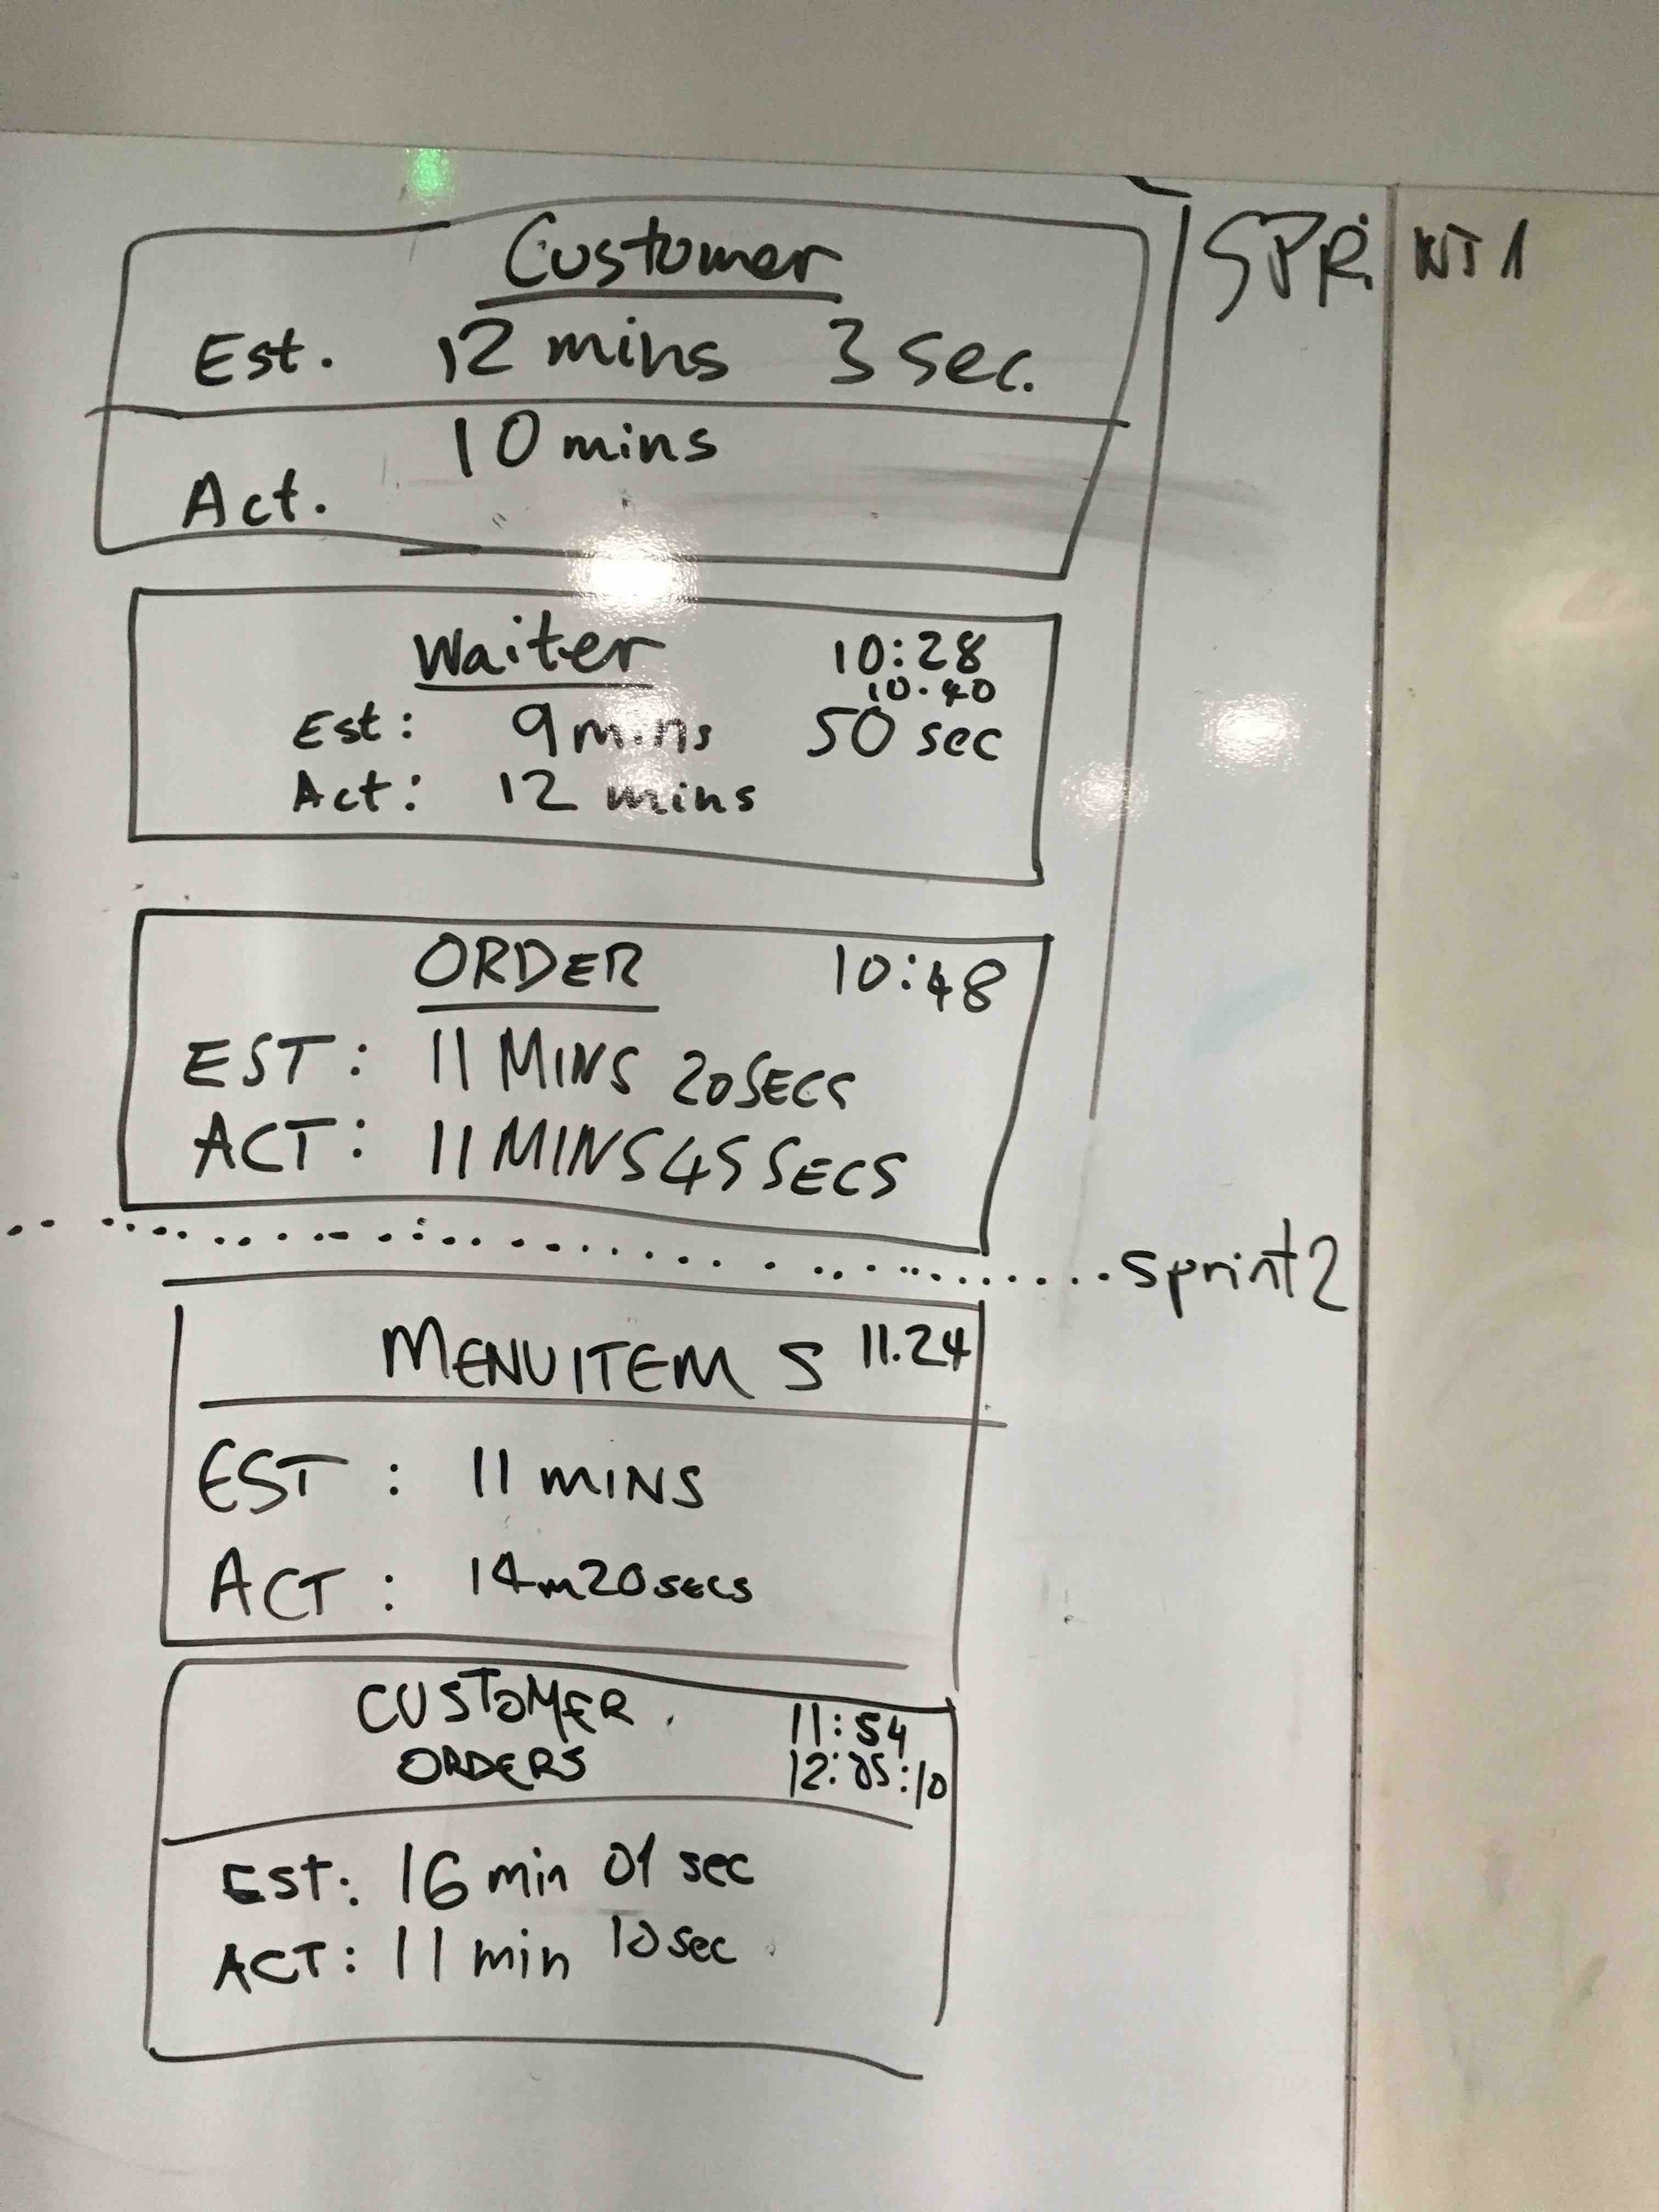 Customer
Est. 12 mins 3 sec.
10 mins
Act.
SPRiNT 1
Waiter 10:28
10.40
Est: 9 mins 50 sec
Act: 12 mins
ORDER 10:48
EST: 11 MINS 20 SECS
ACT: 11 MINS 45 SECS
sprint 2
MENUITEMS 11.24
EST: 11 MINS
ACT: 14m20secs
CUSTOMER 11:54
ORDERS 12:05:10
EST: 16 min 01 sec
ACT: 11 min 10 sec